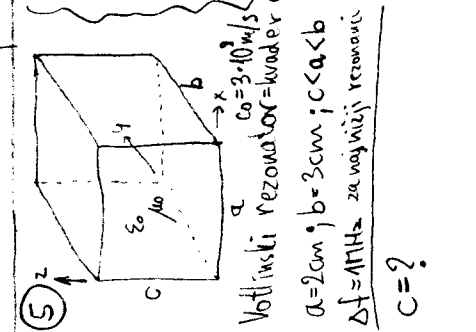 5
z
y
x
ε₀ μ₀
a
b
c
c₀=3·10⁸m/s
Votlinski rezonator=kvader
a=2cm; b=3cm; c<a<b
Δf=1MHz za najnižji rezonanci
c=?